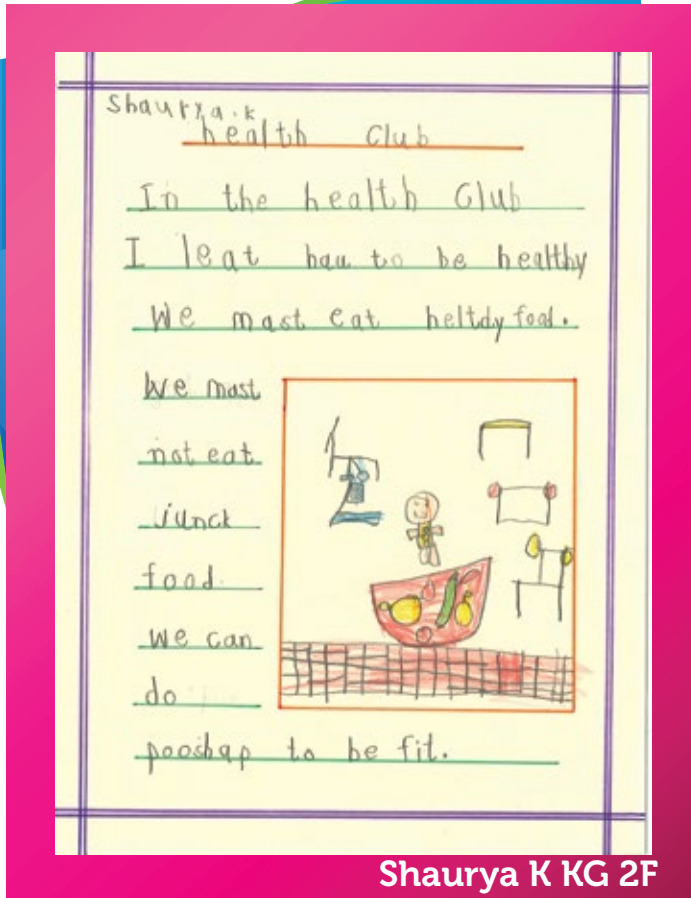 Shaurya.k
health Club
In the health Club
I leat hau to be healthy
We mast eat heltdy food.
We mast
not eat
junck
food.
We can
do
pooshap to be fit.
Shaurya K KG 2F